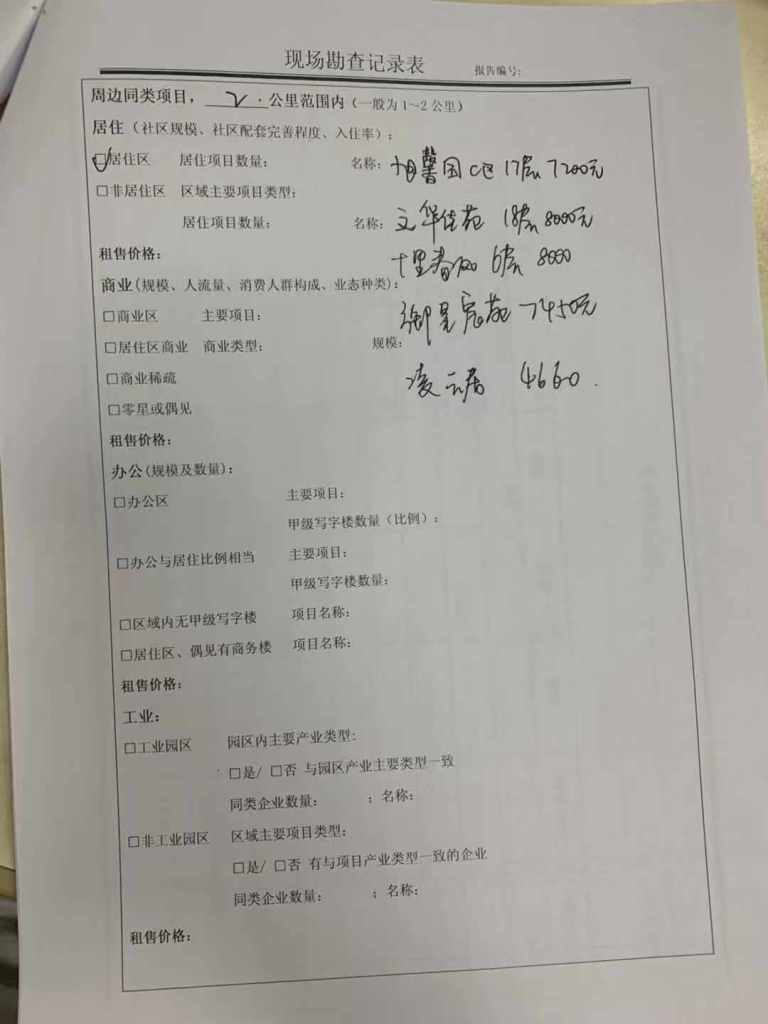 现场勘查记录表 报告编号:
周边同类项目， 2 公里范围内（一般为1~2公里）
居住（社区规模、社区配套完善程度、入住率）：
☑居住区 居住项目数量： 名称： 馨园C区 17层 7200元
□非居住区 区域主要项目类型：
居住项目数量： 名称： 文华佳苑 18层 8000元
租售价格： 十里春风 6层 8000
商业(规模、人流量、消费人群构成、业态种类)：
□商业区 主要项目： 御景苑 7450元
□居住区商业 商业类型： 规模：
□商业稀疏 凌云居 4660
□零星或偶见
租售价格：
办公(规模及数量)：
□办公区 主要项目：
甲级写字楼数量（比例）：
□办公与居住比例相当 主要项目：
甲级写字楼数量：
□区域内无甲级写字楼 项目名称：
□居住区、偶见有商务楼 项目名称：
租售价格：
工业：
□工业园区 园区内主要产业类型:
□是/ □否 与园区产业主要类型一致
同类企业数量： ；名称：
□非工业园区 区域主要项目类型：
□是/ □否 有与项目产业类型一致的企业
同类企业数量： ；名称：
租售价格：